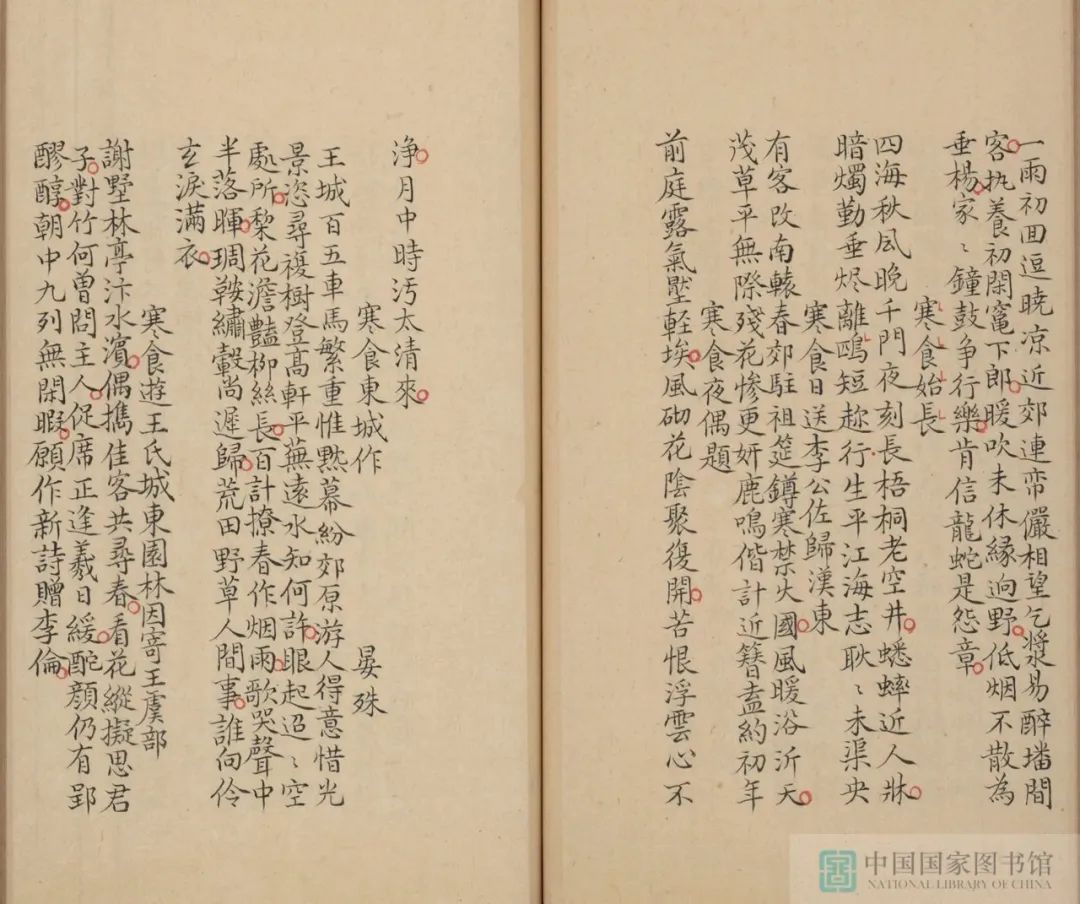 一雨初回逗曉凉近郊連帟儼相望乞漿易醉墦間
客執養初閑竃下郎暖吹未休緣逈野低烟不散為
垂楊家〻鐘鼓争行樂肯信龍蛇是怨章
寒食始長
四海秋風晚千門夜刻長梧桐老空井蟋蟀近人牀
暗燭勤垂烬離鴎短趂行生平江海志耿〻未渠央
寒食日送李公佐歸漢東
有客改南轅春郊駐祖筵鐏寒禁火國風暖浴沂天
茂草平無際殘花慘更妍鹿鳴偕計近簪盍約初年
寒食夜偶題
前庭露氣壓輕埃風砌花陰聚復開苦恨浮雲心不
浄月中時汚太清來
寒食東城作 晏殊
王城百五車馬繁重惟黙幕紛郊原游人得意惜光
景恣尋複樹登髙軒平蕪遠水知何許眼起迢〻空
處所棃花澹豔柳絲長百計撩春作烟雨歌哭聲中
半落暉琱鞍繡轂尚遲歸荒田野草人間事誰向伶
玄淚滿衣
寒食遊王氏城東園林因寄王虞部
謝墅林亭汴水濱偶擕佳客共尋春看花縱擬思君
子對竹何曽問主人促席正逢羲日緩酡顔仍有郢
醪醇朝中九列無閑暇願作新詩贈李倫
中国国家图书馆
NATIONAL LIBRARY OF CHINA